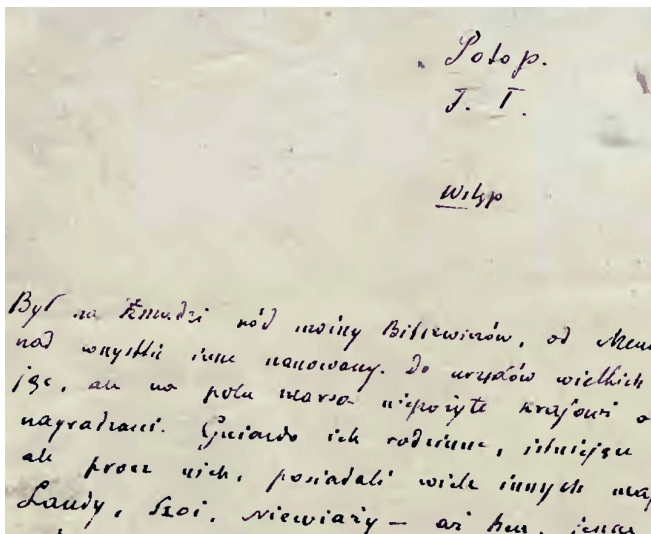 Potop.
T. I.
Wstęp
Był na Żmudzi ród możny Billewiczów, od Men
nad wszystkie inne szanowany. Do urzędów wielkich
jąc, ale na polu marsa niepożyte krajowi o
nagradzani. Gniazdo ich rodzinne, istniejące
ale prócz nich, posiadali wiele innych maj
Laudy, Szoi, Niewiaży – aż hen, jeszcze